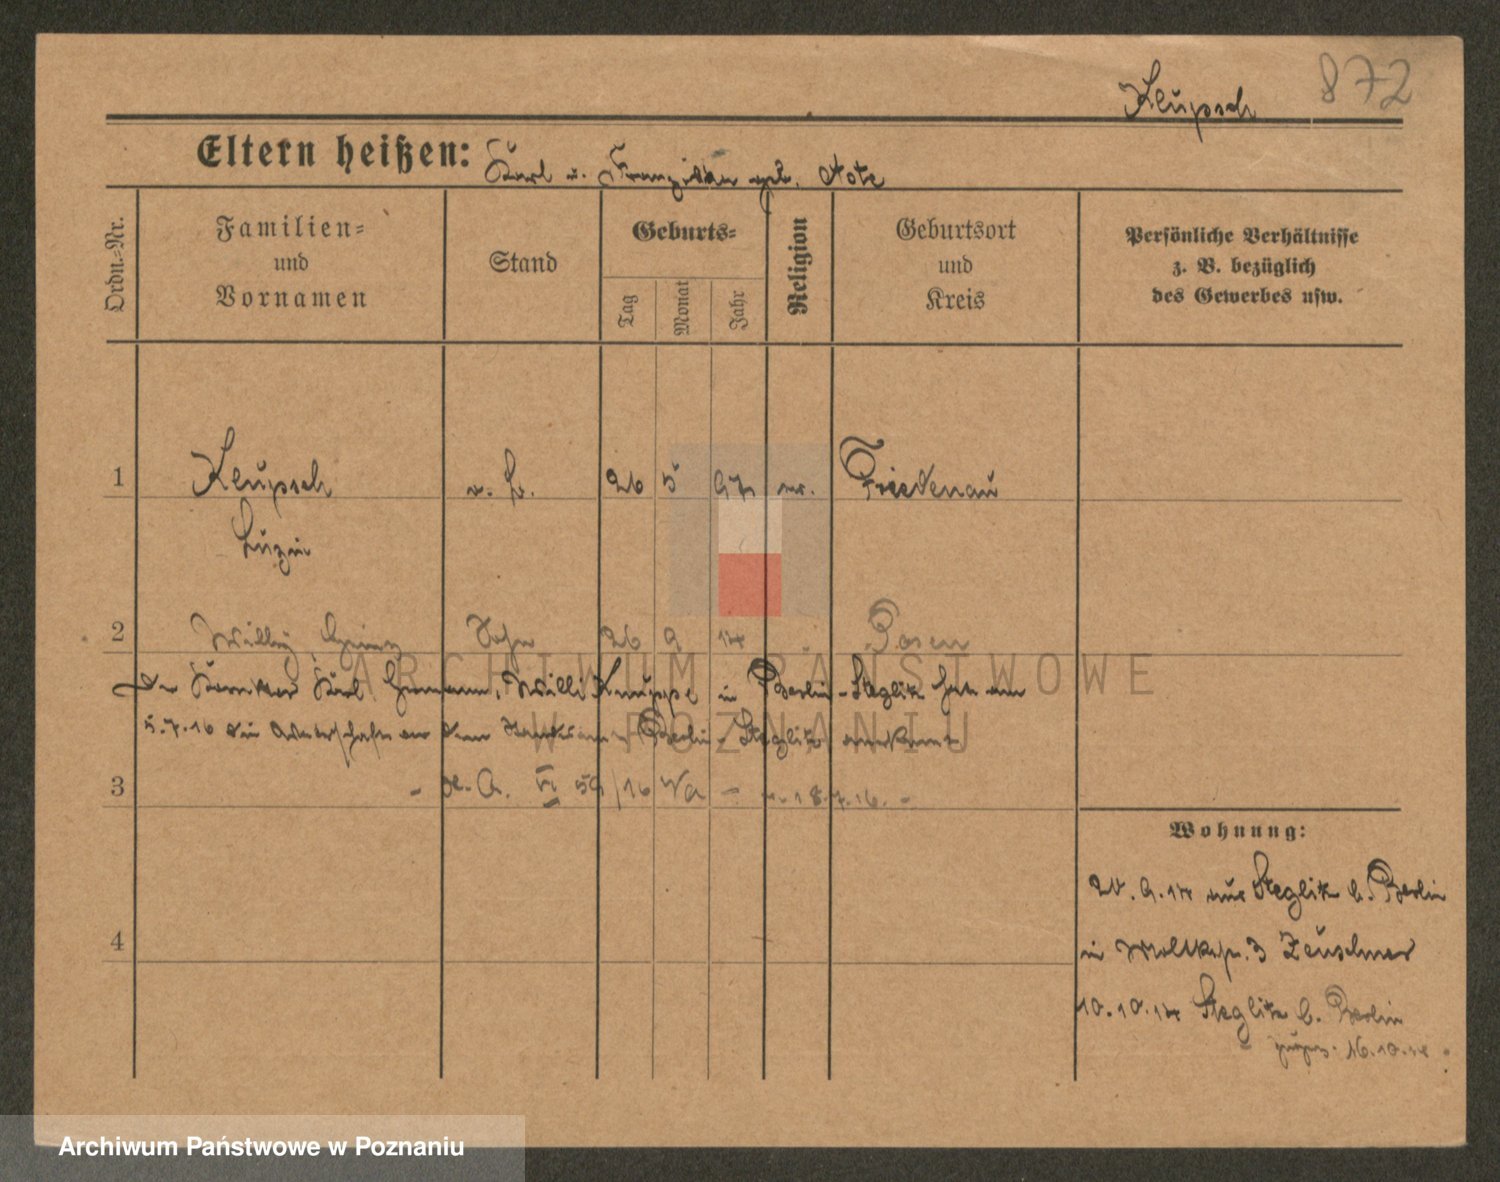 872
Klupsch
Eltern heißen: Karl u. Franziska geb. Note
Ordn.-Nr.
Familien-
und
Vornamen
Stand
Geburts-
Tag
Monat
Jahr
Religion
Geburtsort
und
Kreis
Persönliche Verhältnisse
z. B. bezüglich
des Gewerbes usw.
1 Klupsch 26 5 Friedenau
Luzie
2 Willy Heinz Sohn 26 9 14 Posen
ARCHIWUM PAŃSTWOWE
Karl Hermann Willi Knuppe in Berlin-Steglitz hat am
5.7.16 die Vaterschaft vor dem Standesamt Berlin-Steglitz anerkannt
W POZNANIU
3 - VI 59/16 - 18.7.16. -
Wohnung:
20.9.14 aus Steglitz b. Berlin
in 3 Zeuschner
4
10.10.14 Steglitz b. Berlin
16.10.14
Archiwum Państwowe w Poznaniu